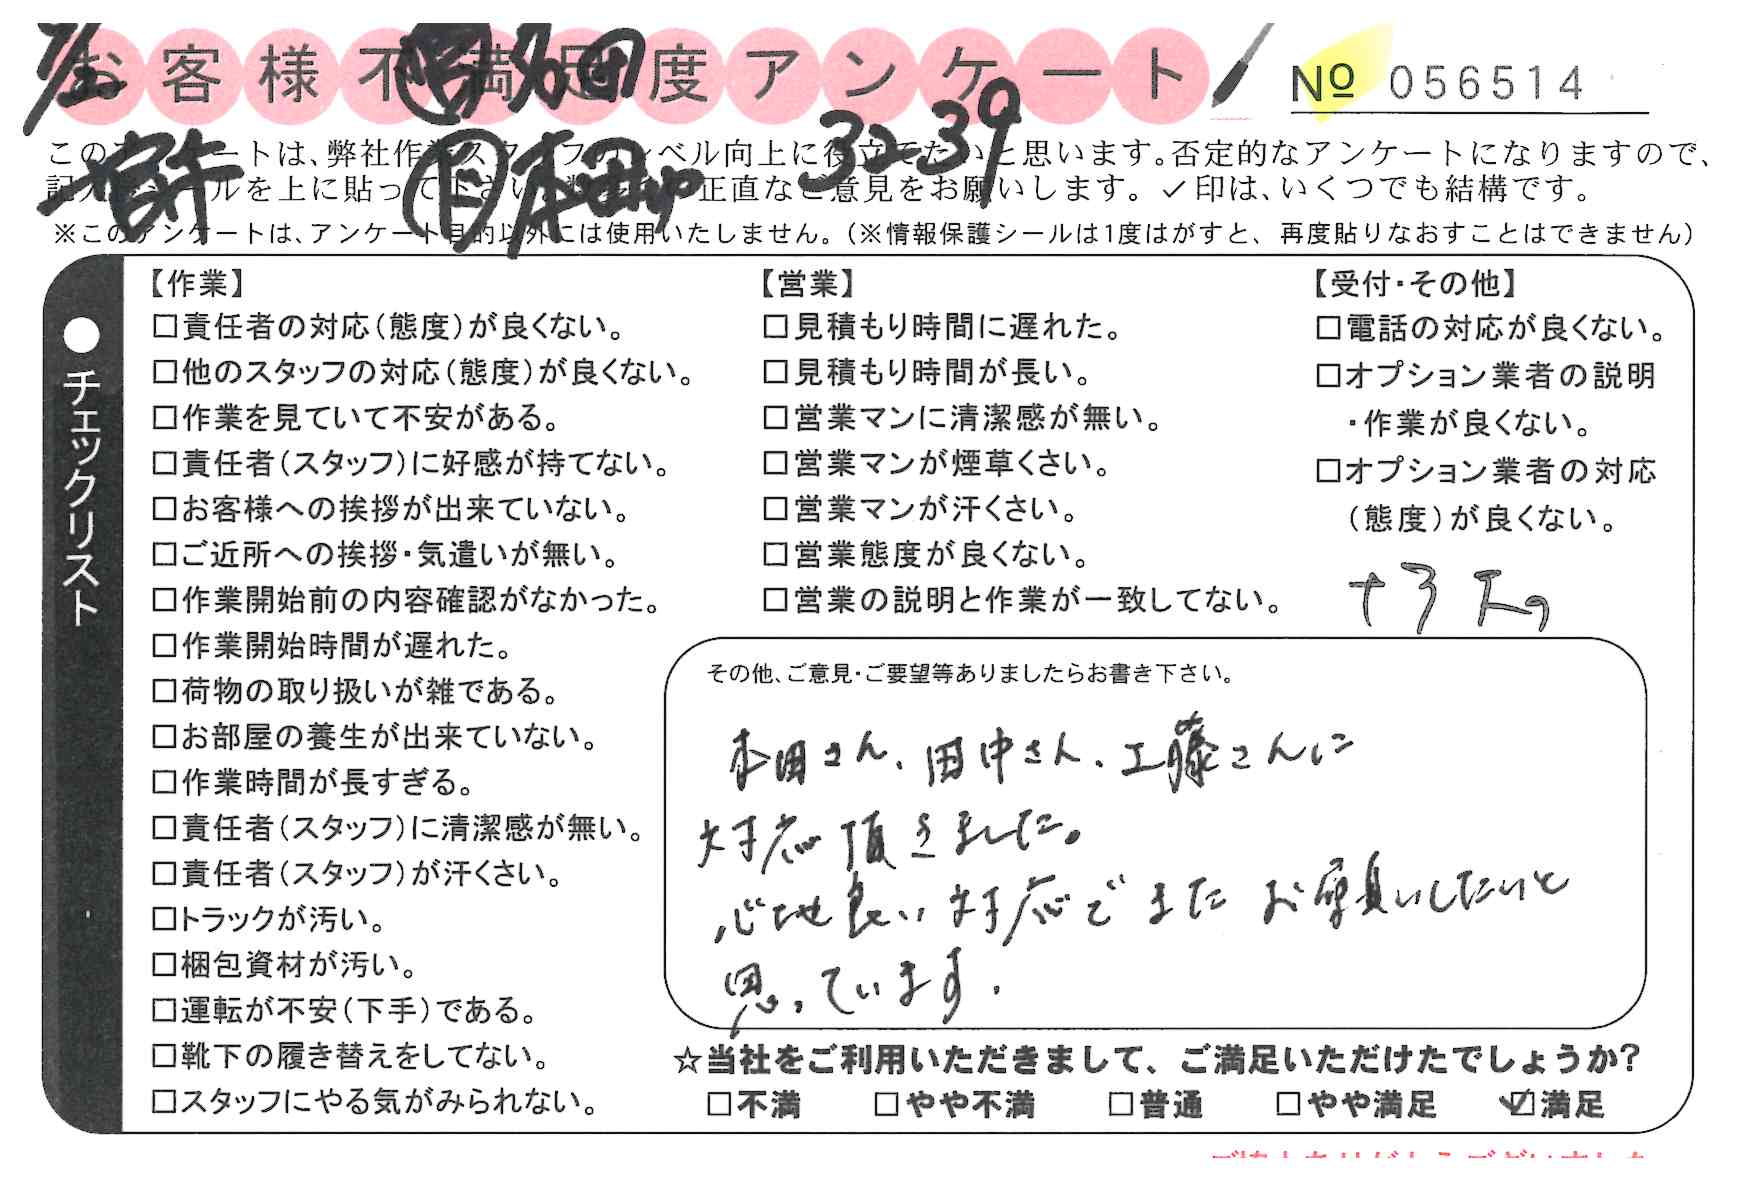 お客様不満足度アンケート
№ 056514
7/
32-39
このアンケートは、弊社作業スタッフのレベル向上に役立てたいと思います。否定的なアンケートになりますので、
記入後シールを上に貼って下さい。 正直なご意見をお願いします。✓印は、いくつでも結構です。
※このアンケートは、アンケート目的以外には使用いたしません。(※情報保護シールは1度はがすと、再度貼りなおすことはできません)
●チェックリスト
【作業】
□責任者の対応(態度)が良くない。
□他のスタッフの対応(態度)が良くない。
□作業を見ていて不安がある。
□責任者(スタッフ)に好感が持てない。
□お客様への挨拶が出来ていない。
□ご近所への挨拶・気遣いが無い。
□作業開始前の内容確認がなかった。
□作業開始時間が遅れた。
□荷物の取り扱いが雑である。
□お部屋の養生が出来ていない。
□作業時間が長すぎる。
□責任者(スタッフ)に清潔感が無い。
□責任者(スタッフ)が汗くさい。
□トラックが汚い。
□梱包資材が汚い。
□運転が不安(下手)である。
□靴下の履き替えをしてない。
□スタッフにやる気がみられない。
【営業】
□見積もり時間に遅れた。
□見積もり時間が長い。
□営業マンに清潔感が無い。
□営業マンが煙草くさい。
□営業マンが汗くさい。
□営業態度が良くない。
□営業の説明と作業が一致してない。
【受付・その他】
□電話の対応が良くない。
□オプション業者の説明
・作業が良くない。
□オプション業者の対応
(態度)が良くない。
その他、ご意見・ご要望等ありましたらお書き下さい。
本田さん、田中さん、工藤さんに
対応頂きました。
心地良い対応でまたお願いしたいと
思っています。
☆当社をご利用いただきまして、ご満足いただけたでしょうか?
□不満 □やや不満 □普通 □やや満足 ☑満足